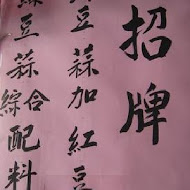 招牌
綠豆蒜加紅豆
綠豆蒜綜合配料